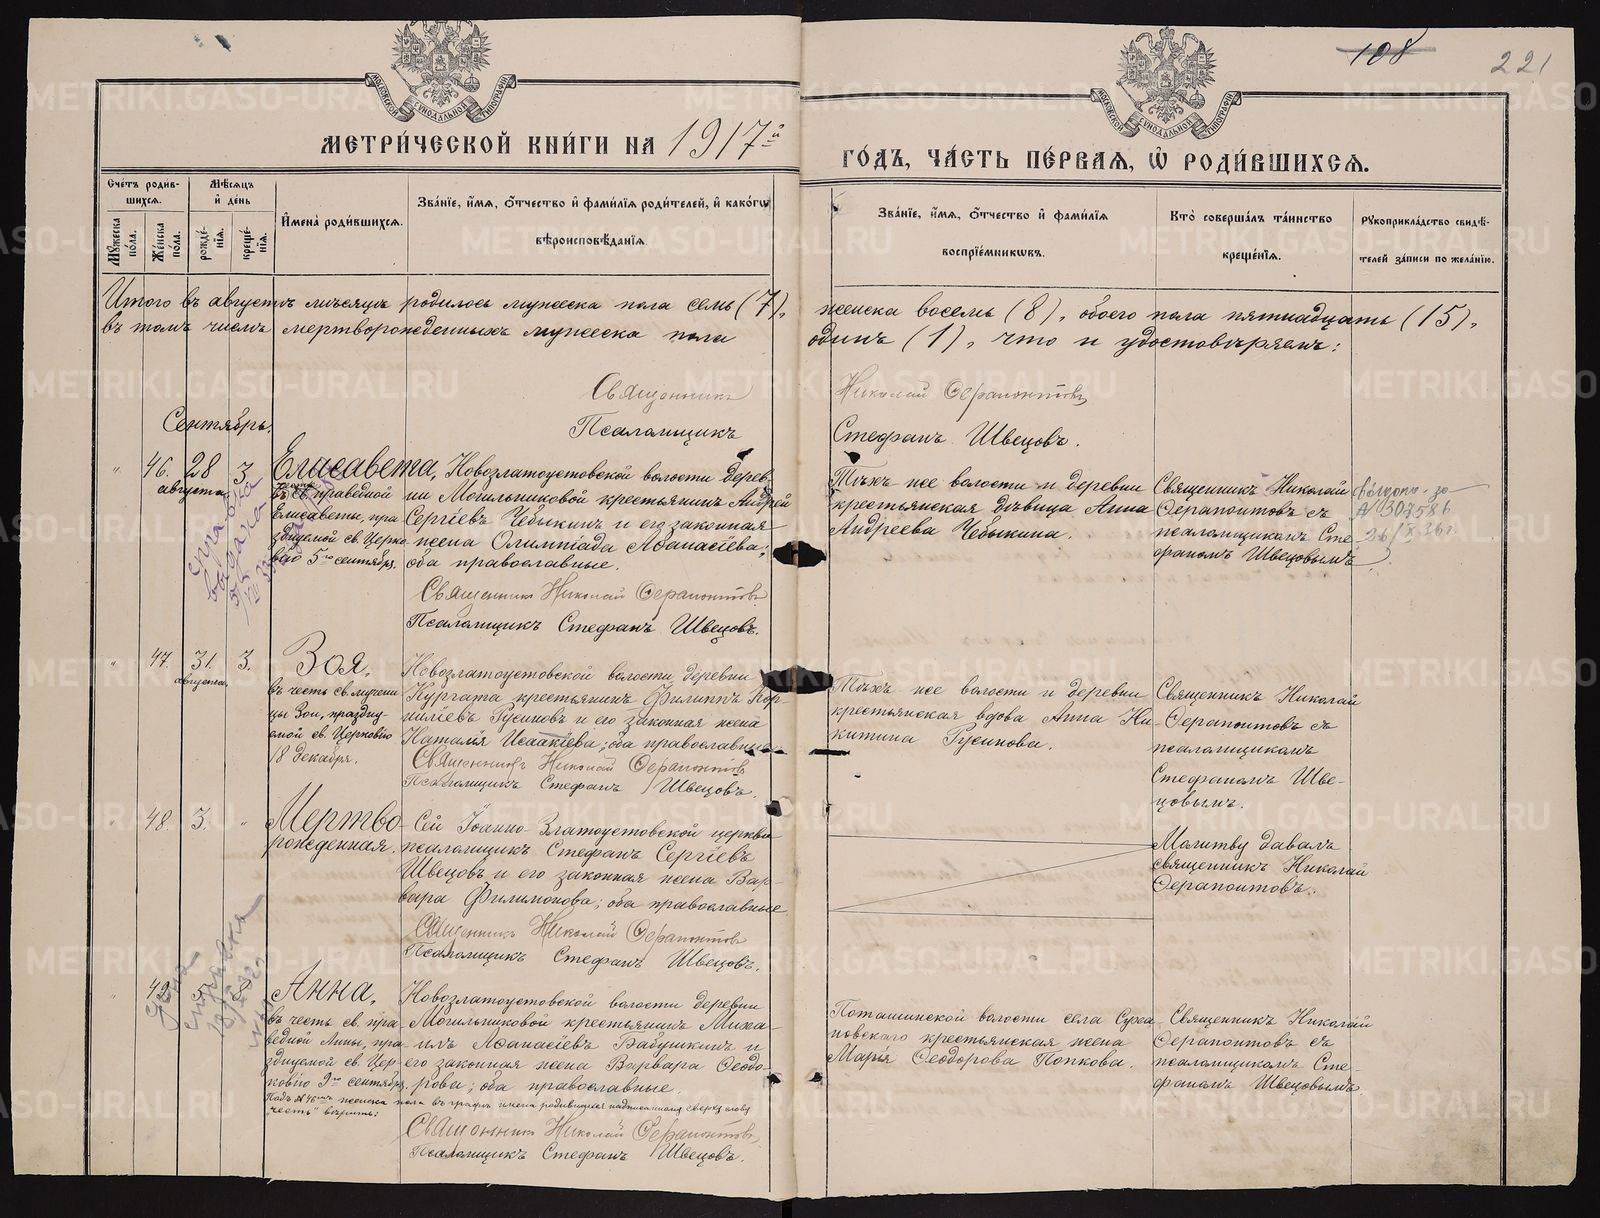 108
221
МЕТРИ́ЧЕСКОЙ КНИ́ГИ НА 1917й
ГО́ДЪ, ЧА́СТЬ ПЕ́РВАЯ, Ѡ҆ РОДИ́ВШИХСѦ.
МОСКОВСКОЙ СѴНОДАЛЬНОЙ ТИПОГРАФІИ
МОСКОВСКОЙ СѴНОДАЛЬНОЙ ТИПОГРАФІИ
Счетъ родив-
шихсѧ.
Мꙋжеска
пола.
Женска
пола.
Мѣсѧцъ
и҆ день
рожде-
нїѧ.
креще-
нїѧ.
И҆мена̀ роди́вшихсѧ.
Зва́нїе, и҆́мѧ, о҆́тчество и҆ фами́лїѧ роди́телей, и҆ како́гѡ
вѣроисповѣ́данїѧ.
Зва́нїе, и҆́мѧ, о҆́тчество и҆ фами́лїѧ
воспрїе́мникѡвъ.
Кто̀ соверша́лъ та́инство
креще́нїѧ.
Рꙋкоприкла́дство свидѣ́-
телей за́писи по жела́нїю.
Итого въ августѣ мѣсяцѣ родилось мужеска пола семь (7), женска восемь (8), обоего пола пятнадцать (15),
въ томъ числѣ мертворожденныхъ мужеска пола одинъ (1), что и удостовѣряемъ:
Священникъ Николай Ѳерапонтовъ
Псаломщикъ Стефанъ Швецовъ.
Сентябрь.
46. 28 августа 3
Елисавета,
въ честь св. праведной
Елисаветы, пра-
здуемой св. Церко-
вію 5го сентября.
Новозлатоустовской волости дерев-
ни Могильниковой крестьянинъ Андрей
Сергіевъ Чебыкинъ и его законная
жена Олимпіада Аѳанасіева;
оба православные.
Священникъ Николай Ѳерапонтовъ
Псаломщикъ Стефанъ Швецовъ.
Тѣхъ же волости и деревни
крестьянская дѣвица Анна
Андреева Чебыкина.
Священникъ Николай
Ѳерапонтовъ съ
псаломщикомъ Сте-
фаномъ Швецовымъ.
№ 307586
26/X 36г.
справка
выдана
47. 31. августа 3.
Зоя,
въ честь св. мучени-
цы Зои, праздну-
емой св. Церковію
18 декабря.
Новозлатоустовской волости деревни
Кургата крестьянинъ Филиппъ Кор-
ниліевъ Русиновъ и его законная жена
Наталія Исаакіева; оба православные
Священникъ Николай Ѳерапонтовъ
Псаломщикъ Стефанъ Швецовъ.
Тѣхъ же волости и деревни
крестьянская вдова Анна Ни-
китина Русинова.
Священникъ Николай
Ѳерапонтовъ съ
псаломщикомъ
Стефаномъ Шве-
цовымъ.
48. 3.
Мертво
рожденная.
Сей Іоанно-Златоустовской церкви
псаломщикъ Стефанъ Сергіевъ
Швецовъ и его законная жена Вар-
вара Филимонова; оба православные
Священникъ Николай Ѳерапонтовъ
Псаломщикъ Стефанъ Швецовъ.
Молитву давалъ
священникъ Николай
Ѳерапонтовъ.
49. 5. 8
справка
Анна,
въ честь св. пра-
ведной Анны, пра-
здуемой св. Цер-
ковію 9го сентября.
Новозлатоустовской волости деревни
Могильниковой крестьянинъ Миха-
илъ Аѳанасіевъ Бабушкинъ и
его законная жена Варвара Ѳеодо-
рова; оба православные.
Подъ №46мъ женска пола въ графѣ имена родившихся надписанному сверху слову
"честь" вѣрить:
Священникъ Николай Ѳерапонтовъ,
Псаломщикъ Стефанъ Швецовъ.
Поташинской волости села Сухановскаго
крестьянская жена
Марія Ѳеодорова Попкова.
Священникъ Николай
Ѳерапонтовъ съ
псаломщикомъ Сте-
фаномъ Швецовымъ.
METRIKI.GASO-URAL.RU